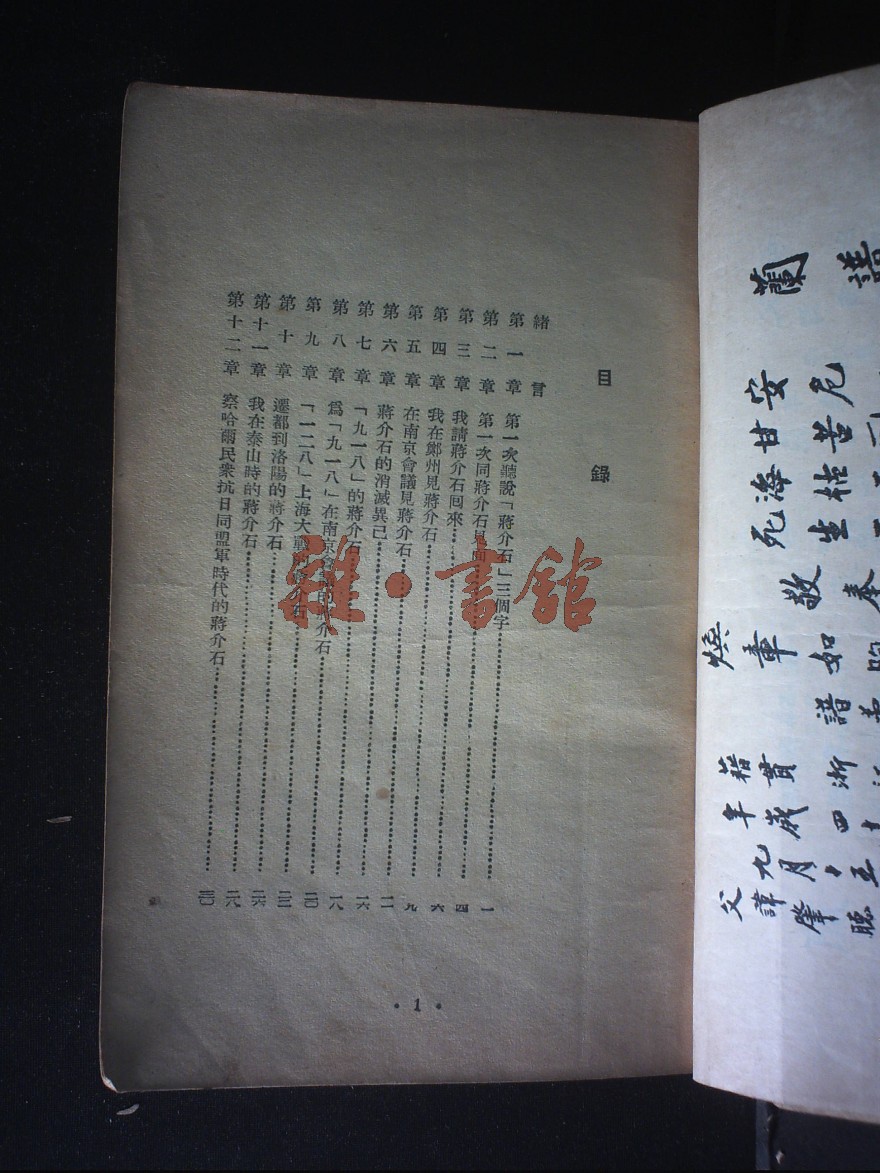 目錄
緒言
第一章 第一次聽說「蔣介石」三個字……一
第二章 第一次同蔣介石見面……四
第三章 我請蔣介石回來……六
第四章 我在鄭州見蔣介石……九
第五章 在南京會議見蔣介石……一二
第六章 蔣介石的消滅異己……一六
第七章 「九一八」的蔣介石……一八
第八章 爲「九一八」在南京會議的蔣介石……二〇
第九章 「一二八」上海大戰的蔣介石……二三
第十章 遷都到洛陽的蔣介石……二六
第十一章 我在泰山時的蔣介石……二八
第十二章 察哈爾民衆抗日同盟軍時代的蔣介石……三〇
• 1 •
雜·書館
蘭譜
安危
甘苦
海枯
死生
敬奉
煥章如
譜
籍貫浙
年歲四十
九月十五
父諱肇聰